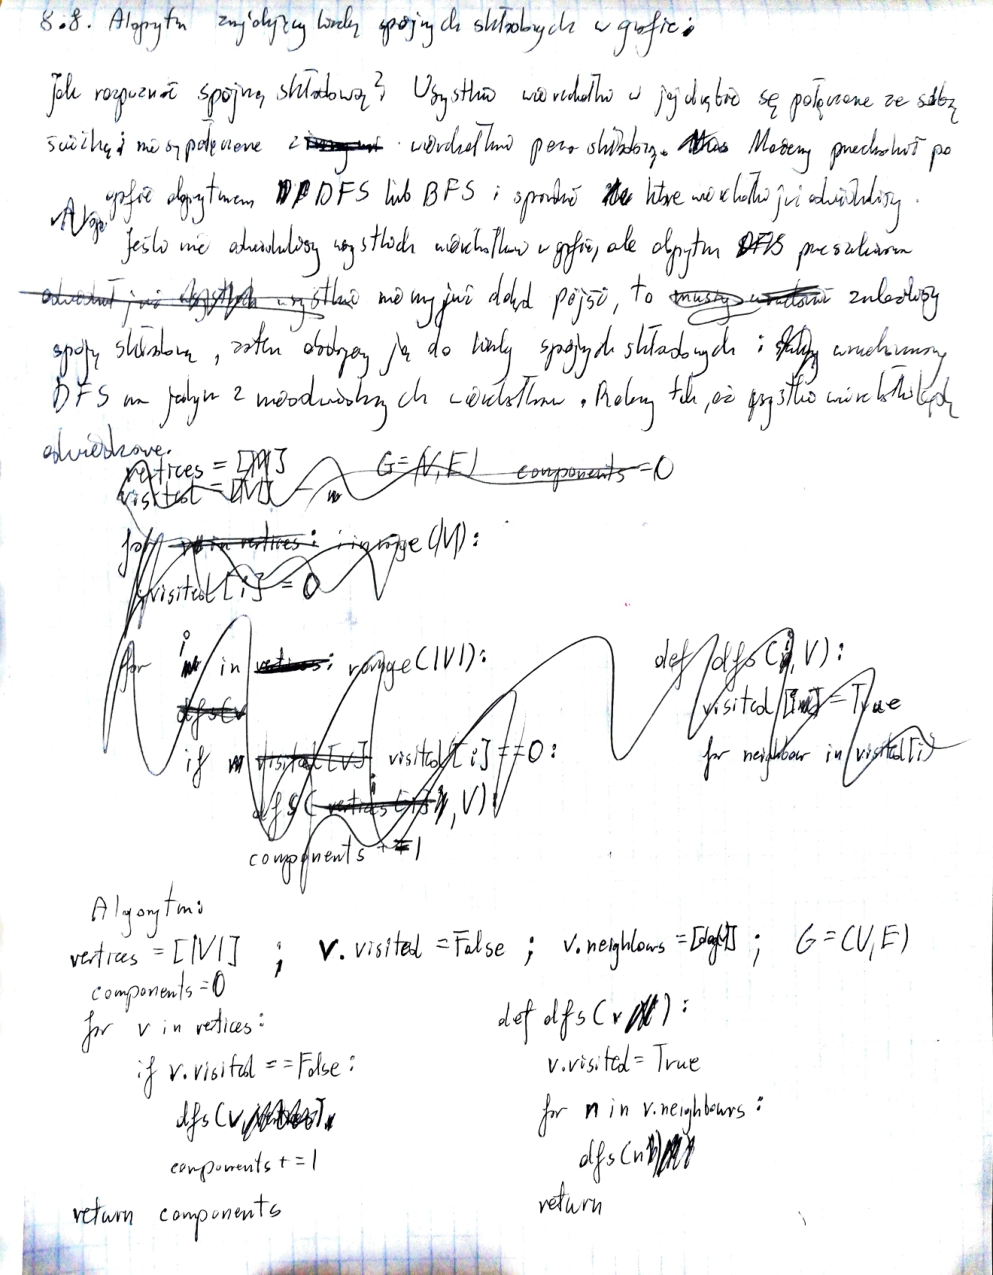 8.8. Algorytm znajdujący liczbę spójnych składowych w grafie:
Jak rozpoznać spójną składową? Wszystkie wierzchołki w jej obrębie są połączone ze sobą
ścieżką i nie są połączone z wierzchołkami poza składową. Możemy przechodzić po
grafie algorytmem DFS lub BFS i sprawdzić które wierzchołki już odwiedziliśmy.
Jeśli nie odwiedziliśmy wszystkich wierzchołków w grafie, ale algorytm DFS
nie ma już dokąd pójść, to znaleźliśmy
spójną składową, zatem dodajemy ją do liczby spójnych składowych i uruchamiamy
DFS na jednym z nieodwiedzonych wierzchołków. Robimy tak, aż wszystkie wierzchołki będą
odwiedzone.
vertices = [|V|] G=(V,E) components=0
visited = [|V|]
for v in vertices: i in range(|V|):
visited[i] = 0
for i in vertices: range(|V|):
def dfs(i,V):
dfs(v
visited = True
if visited[v] visited[i]==0:
for neighbour in visited[i]
dfs(vertices[i], V)
components +=1
Algorytm:
vertices = [|V|] ; v.visited=False ; v.neighbours=[deg(v)] ; G=(V,E)
components=0
for v in vertices:
def dfs(v):
if v.visited==False:
v.visited=True
dfs(v)
for n in v.neighbours:
components+=1
dfs(n)
return components
return